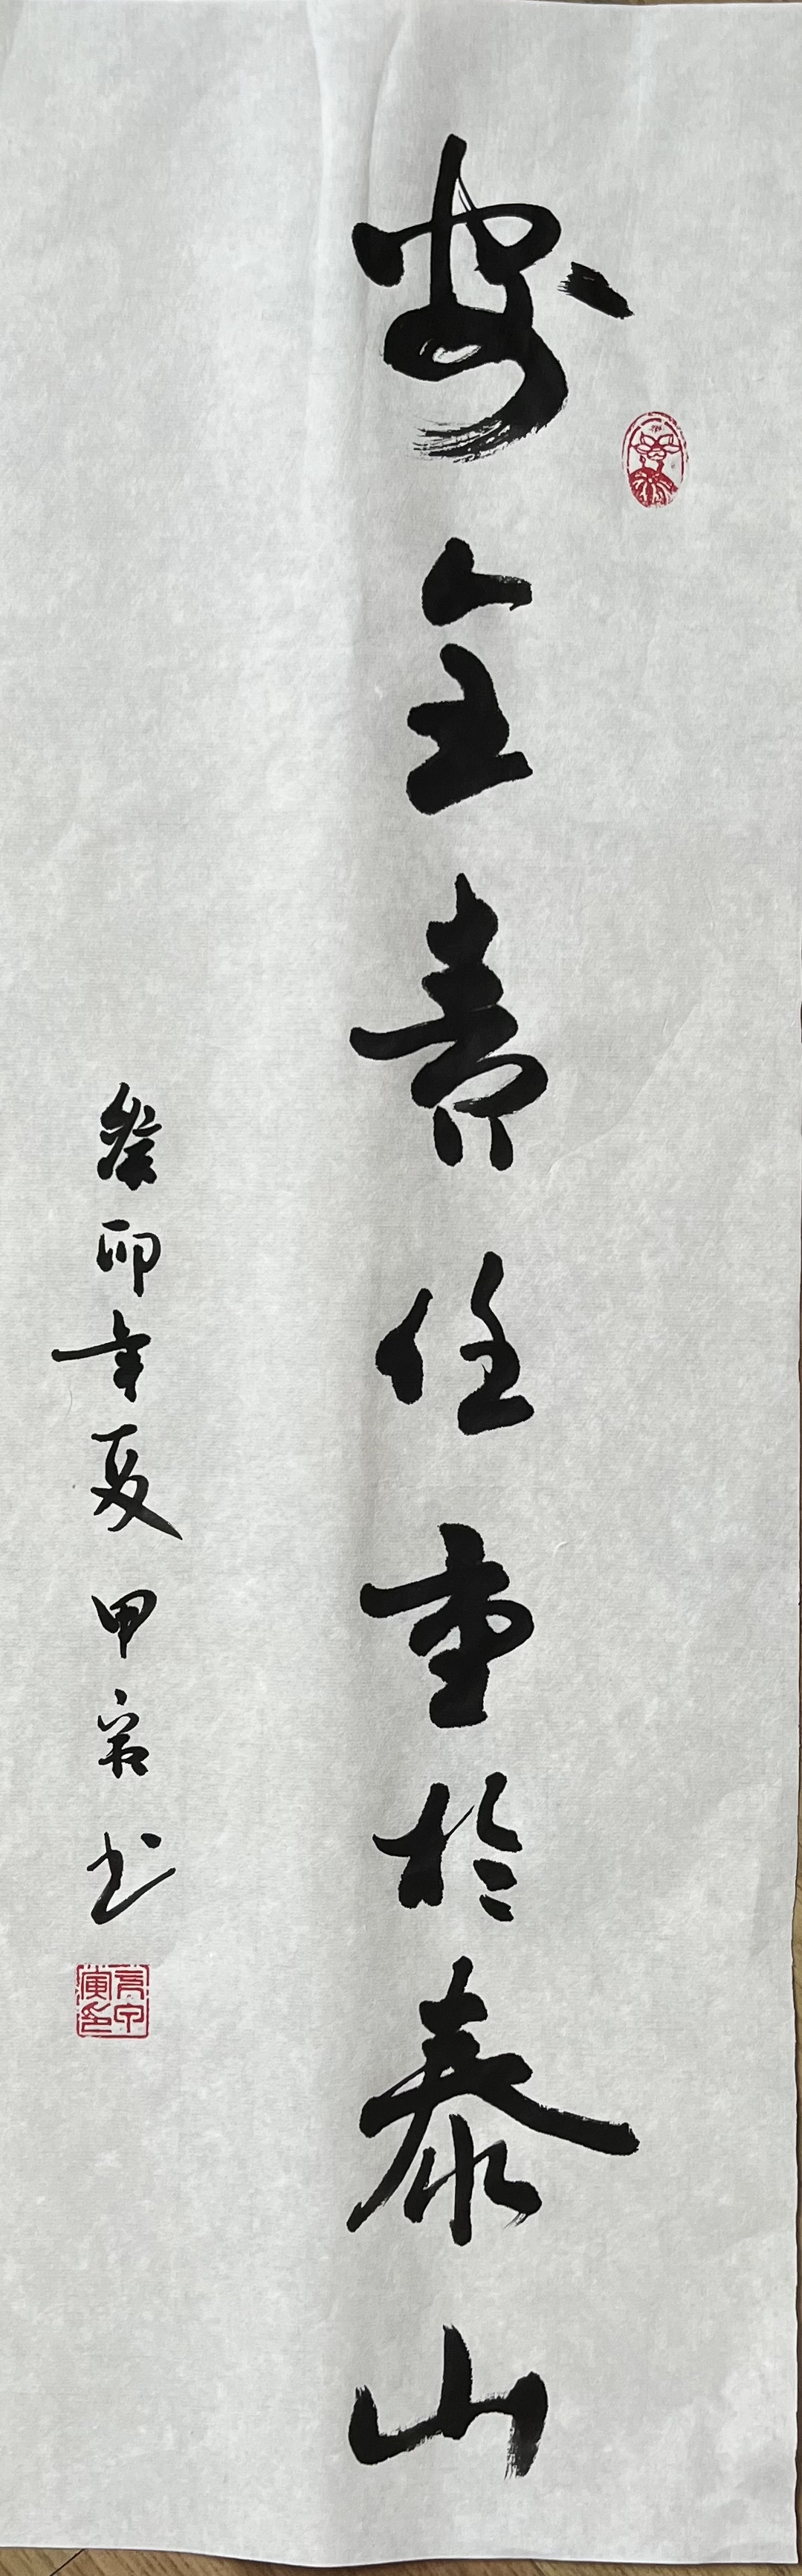 安全責任重於泰山
癸卯年夏甲寅书